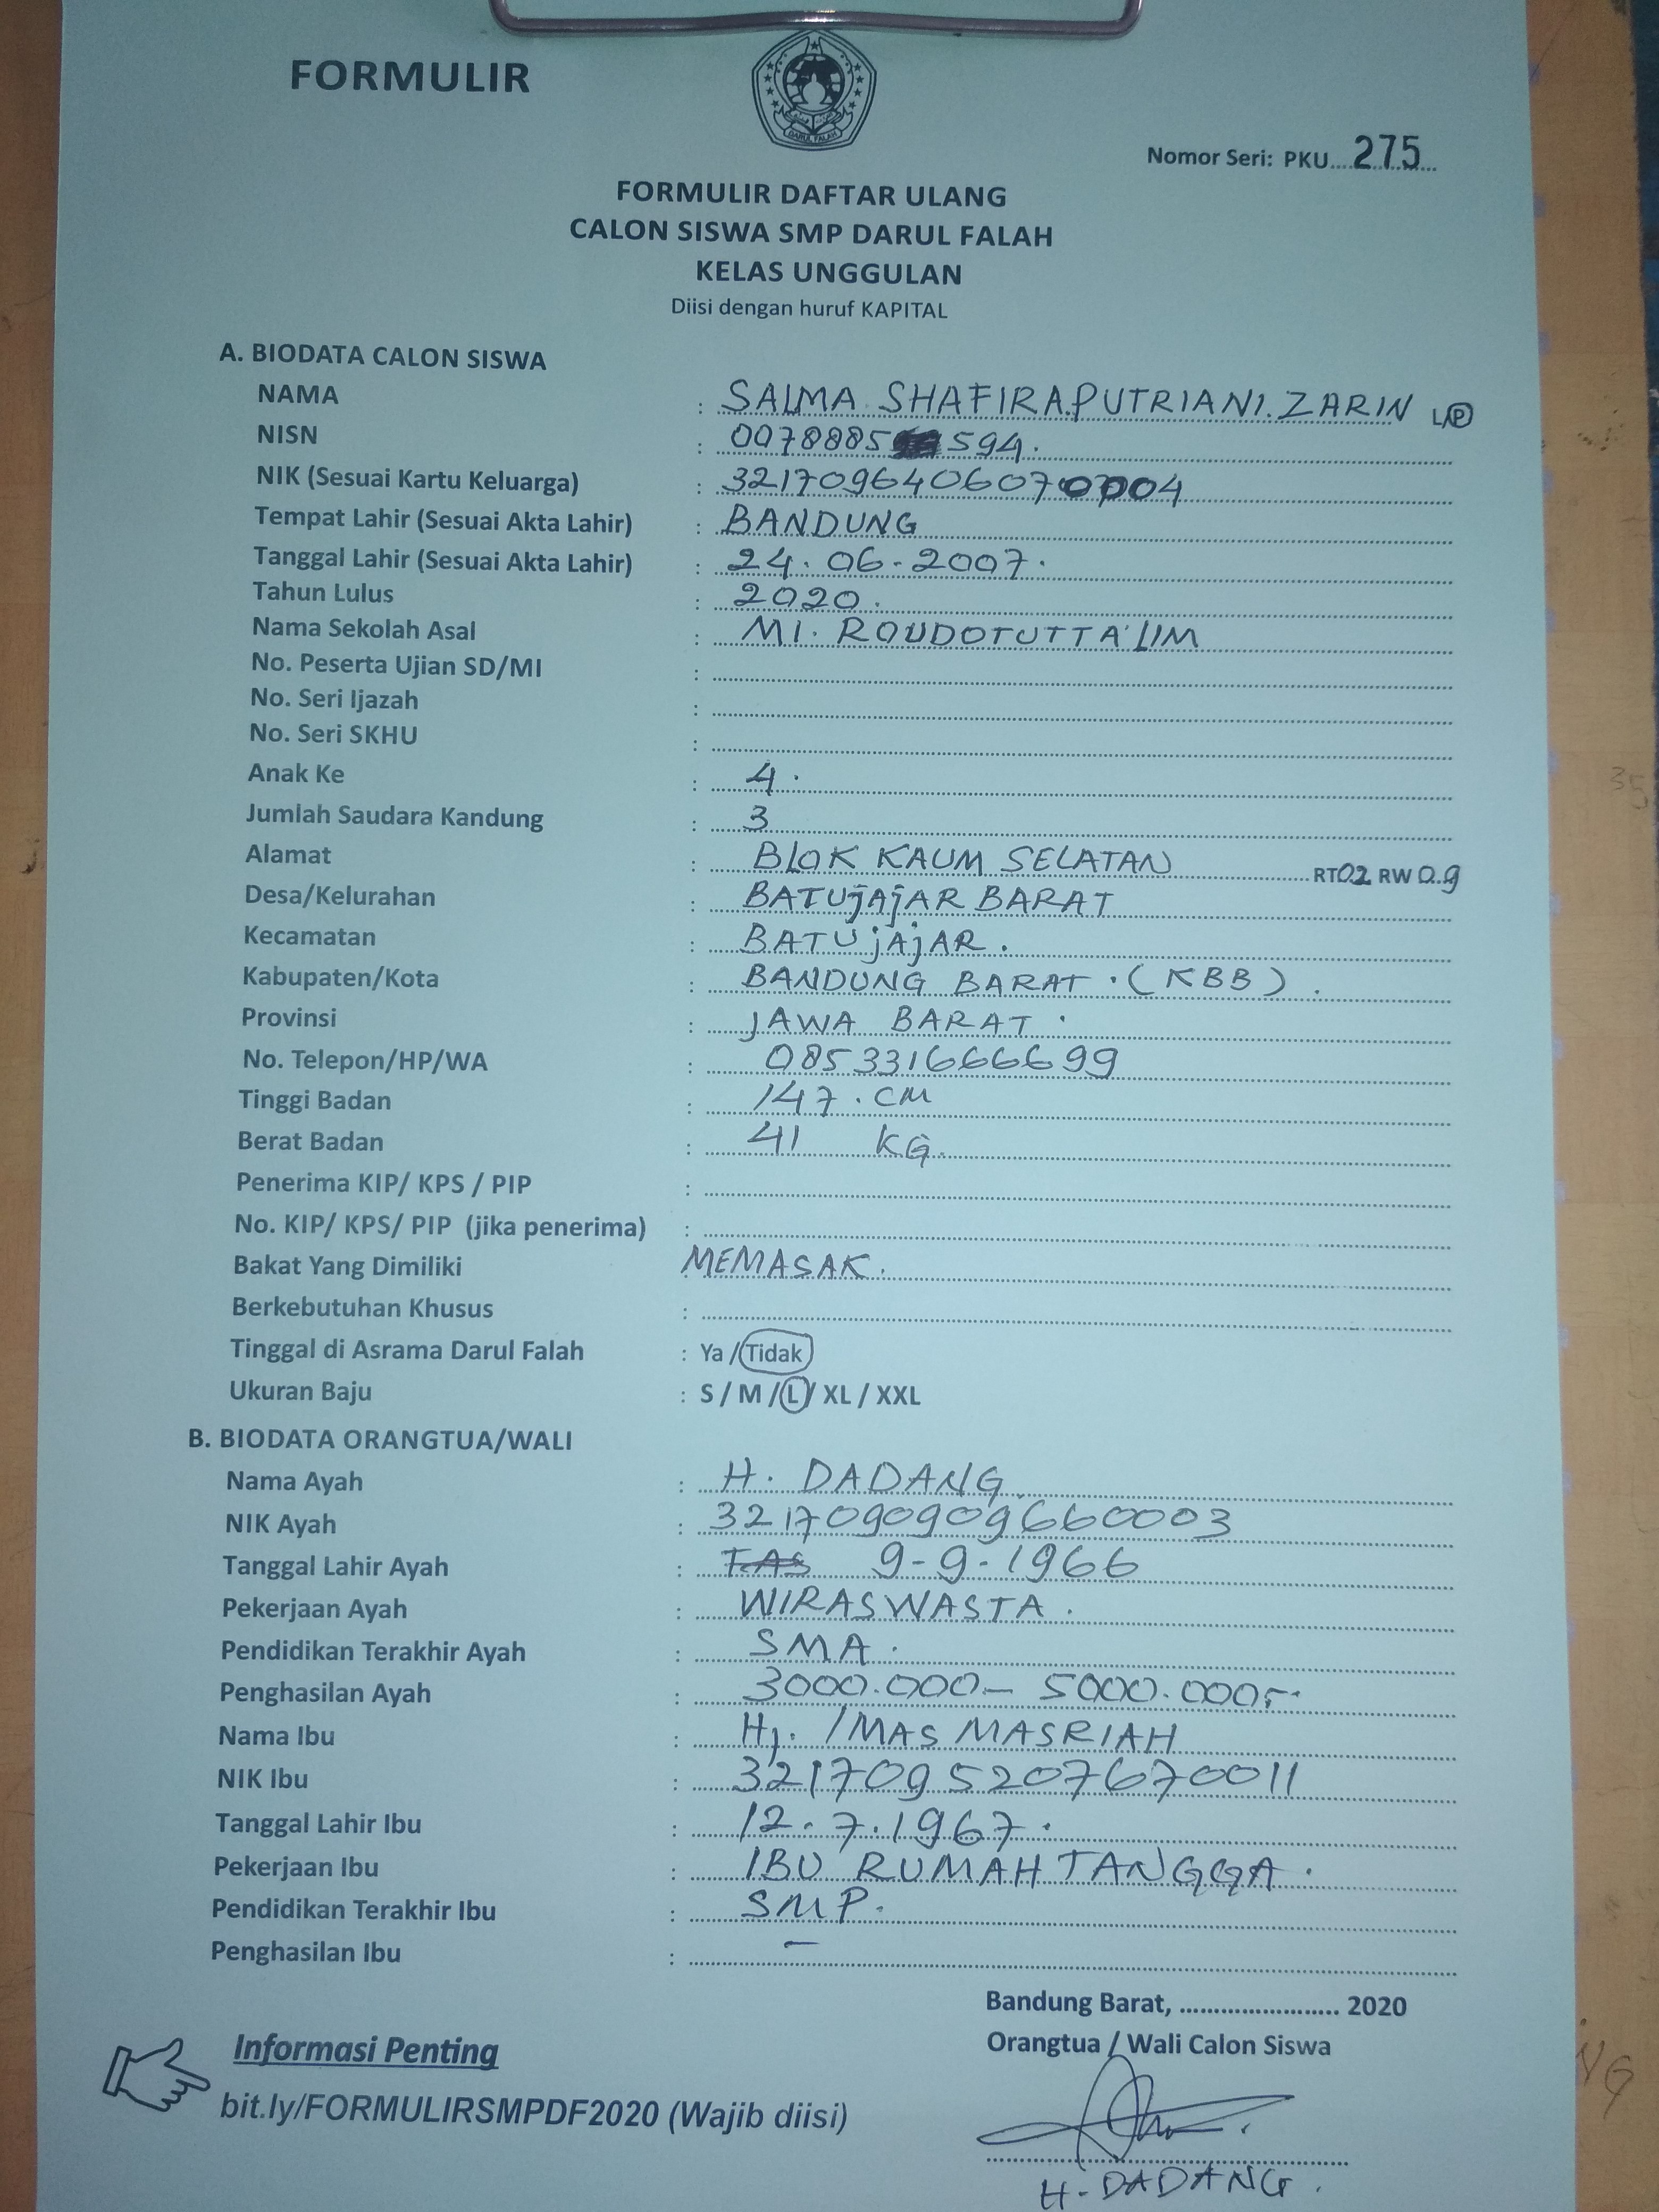 FORMULIR
DARUL FALAH
Nomor Seri: PKU....275...
FORMULIR DAFTAR ULANG
CALON SISWA SMP DARUL FALAH
KELAS UNGGULAN
Diisi dengan huruf KAPITAL
A. BIODATA CALON SISWA
NAMA : SALMA SHAFIRA PUTRIANI ZARIN L/P
NISN : 0078885 594.
NIK (Sesuai Kartu Keluarga) : 3217096406070004
Tempat Lahir (Sesuai Akta Lahir) : BANDUNG
Tanggal Lahir (Sesuai Akta Lahir) : 24.06-2007.
Tahun Lulus : 2020.
Nama Sekolah Asal : MI. ROUDOTUTTA'LIM
No. Peserta Ujian SD/MI :
No. Seri Ijazah :
No. Seri SKHU :
Anak Ke : 4.
Jumlah Saudara Kandung : 3
Alamat : BLOK KAUM SELATAN RT02 RW 09
Desa/Kelurahan : BATUjAjAR BARAT
Kecamatan : BATUjAjAR.
Kabupaten/Kota : BANDUNG BARAT. (KBB).
Provinsi : JAWA BARAT.
No. Telepon/HP/WA : 085331666699
Tinggi Badan : 147. CM
Berat Badan : 41 KG.
Penerima KIP/ KPS / PIP :
No. KIP/ KPS/ PIP (jika penerima) :
Bakat Yang Dimiliki MEMASAK.
Berkebutuhan Khusus :
Tinggal di Asrama Darul Falah : Ya / Tidak
Ukuran Baju : S / M / L / XL / XXL
B. BIODATA ORANGTUA/WALI
Nama Ayah : H. DADANG
NIK Ayah : 3217090909660003
Tanggal Lahir Ayah : TAS 9-9-1966
Pekerjaan Ayah : WIRASWASTA.
Pendidikan Terakhir Ayah : SMA.
Penghasilan Ayah : 3000.000- 5000.000,-
Nama Ibu : Hj. IMAS MASRIAH
NIK Ibu : 3217095207670011
Tanggal Lahir Ibu : 12.7.1967.
Pekerjaan Ibu : IBU RUMAH TANGGA.
Pendidikan Terakhir Ibu : SMP.
Penghasilan Ibu : -
Bandung Barat, ........................ 2020
Orangtua / Wali Calon Siswa
Informasi Penting
bit.ly/FORMULIRSMPDF2020 (Wajib diisi)
H. DADANG.
35
NG